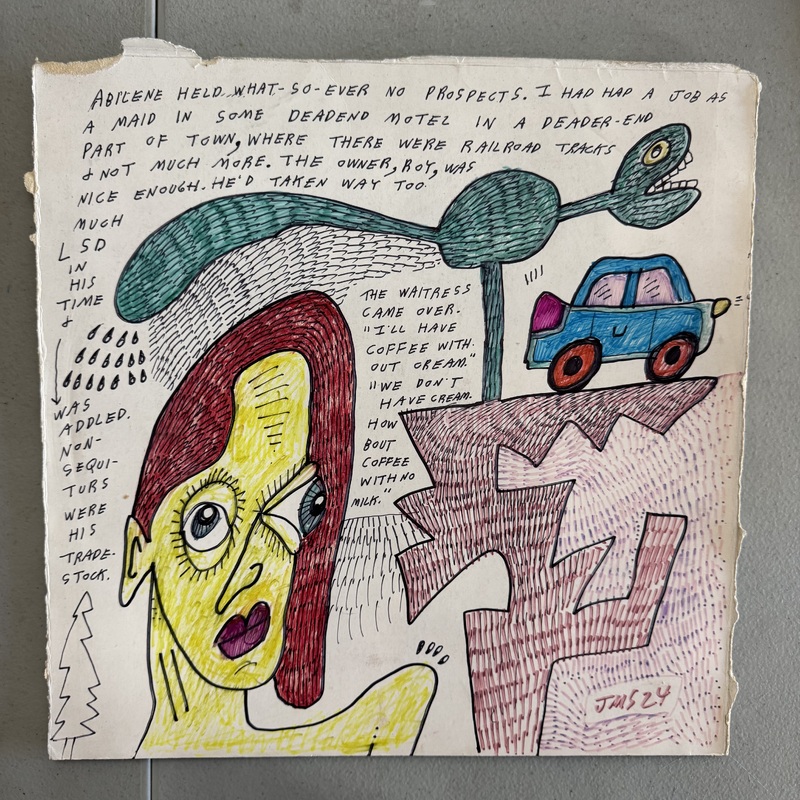 ABILENE HELD WHAT-SO-EVER NO PROSPECTS. I HAD HAD A JOB AS
A MAID IN SOME DEADEND MOTEL IN A DEADER-END
PART OF TOWN, WHERE THERE WERE RAILROAD TRACKS
& NOT MUCH MORE. THE OWNER, ROY, WAS
NICE ENOUGH. HE'D TAKEN WAY TOO
MUCH
LSD
IN
HIS
TIME
&
WAS
ADDLED.
NON-
SEQUI-
TURS
WERE
HIS
TRADE-
STOCK.
THE WAITRESS
CAME OVER.
"I'LL HAVE
COFFEE WITH-
OUT CREAM."
"WE DON'T
HAVE CREAM.
HOW
BOUT
COFFEE
WITH NO
MILK."
JMS 24